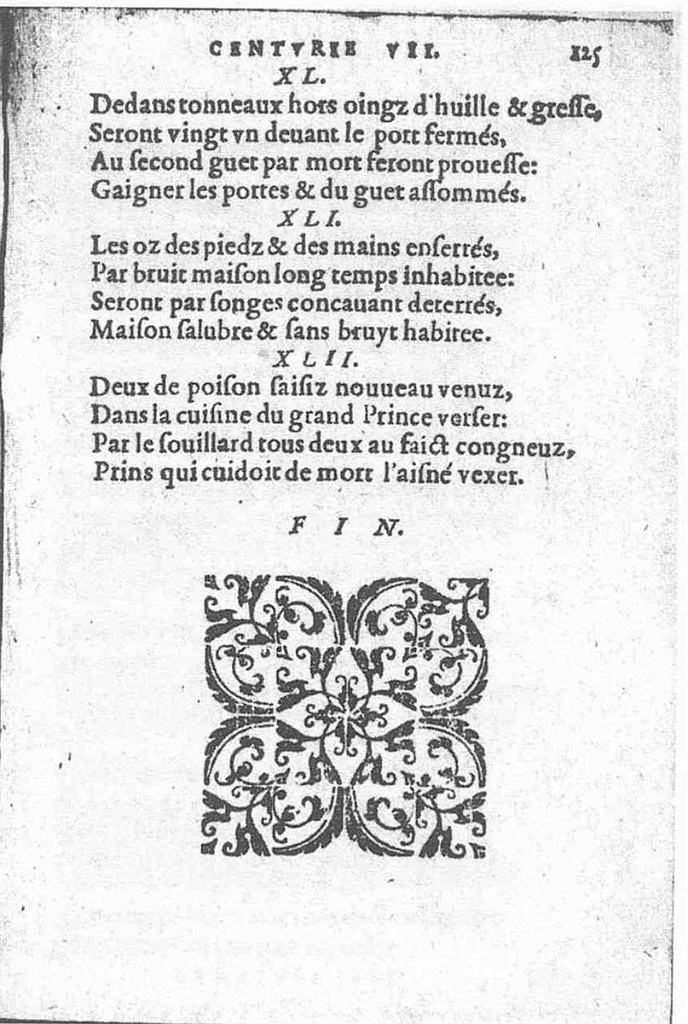 CENTVRIE VII. 125
XL.
Dedans tonneaux hors oingz d'huille & greſſe,
Seront vingt vn deuant le port fermés,
Au ſecond guet par mort feront proueſſe:
Gaigner les portes & du guet aſſommés.
XLI.
Les oz des piedz & des mains enſerrés,
Par bruit maiſon long temps inhabitee:
Seront par ſonges concauant deterrés,
Maiſon ſalubre & ſans bruyt habitee.
XLII.
Deux de poiſon ſaiſiz nouueau venuz,
Dans la cuiſine du grand Prince verſer:
Par le ſouillard tous deux au faict congneuz,
Prins qui cuidoit de mort l'aiſné vexer.
FIN.